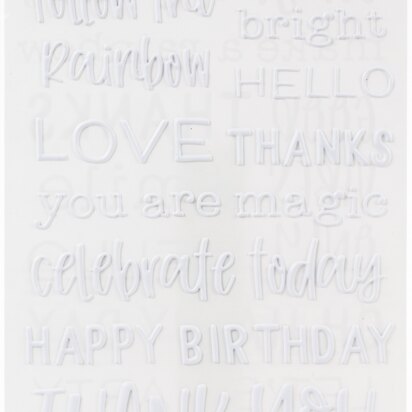 follow the
bright
Rainbow
HELLO
LOVE THANKS
you are magic
celebrate today
HAPPY BIRTHDAY
THANK YOU